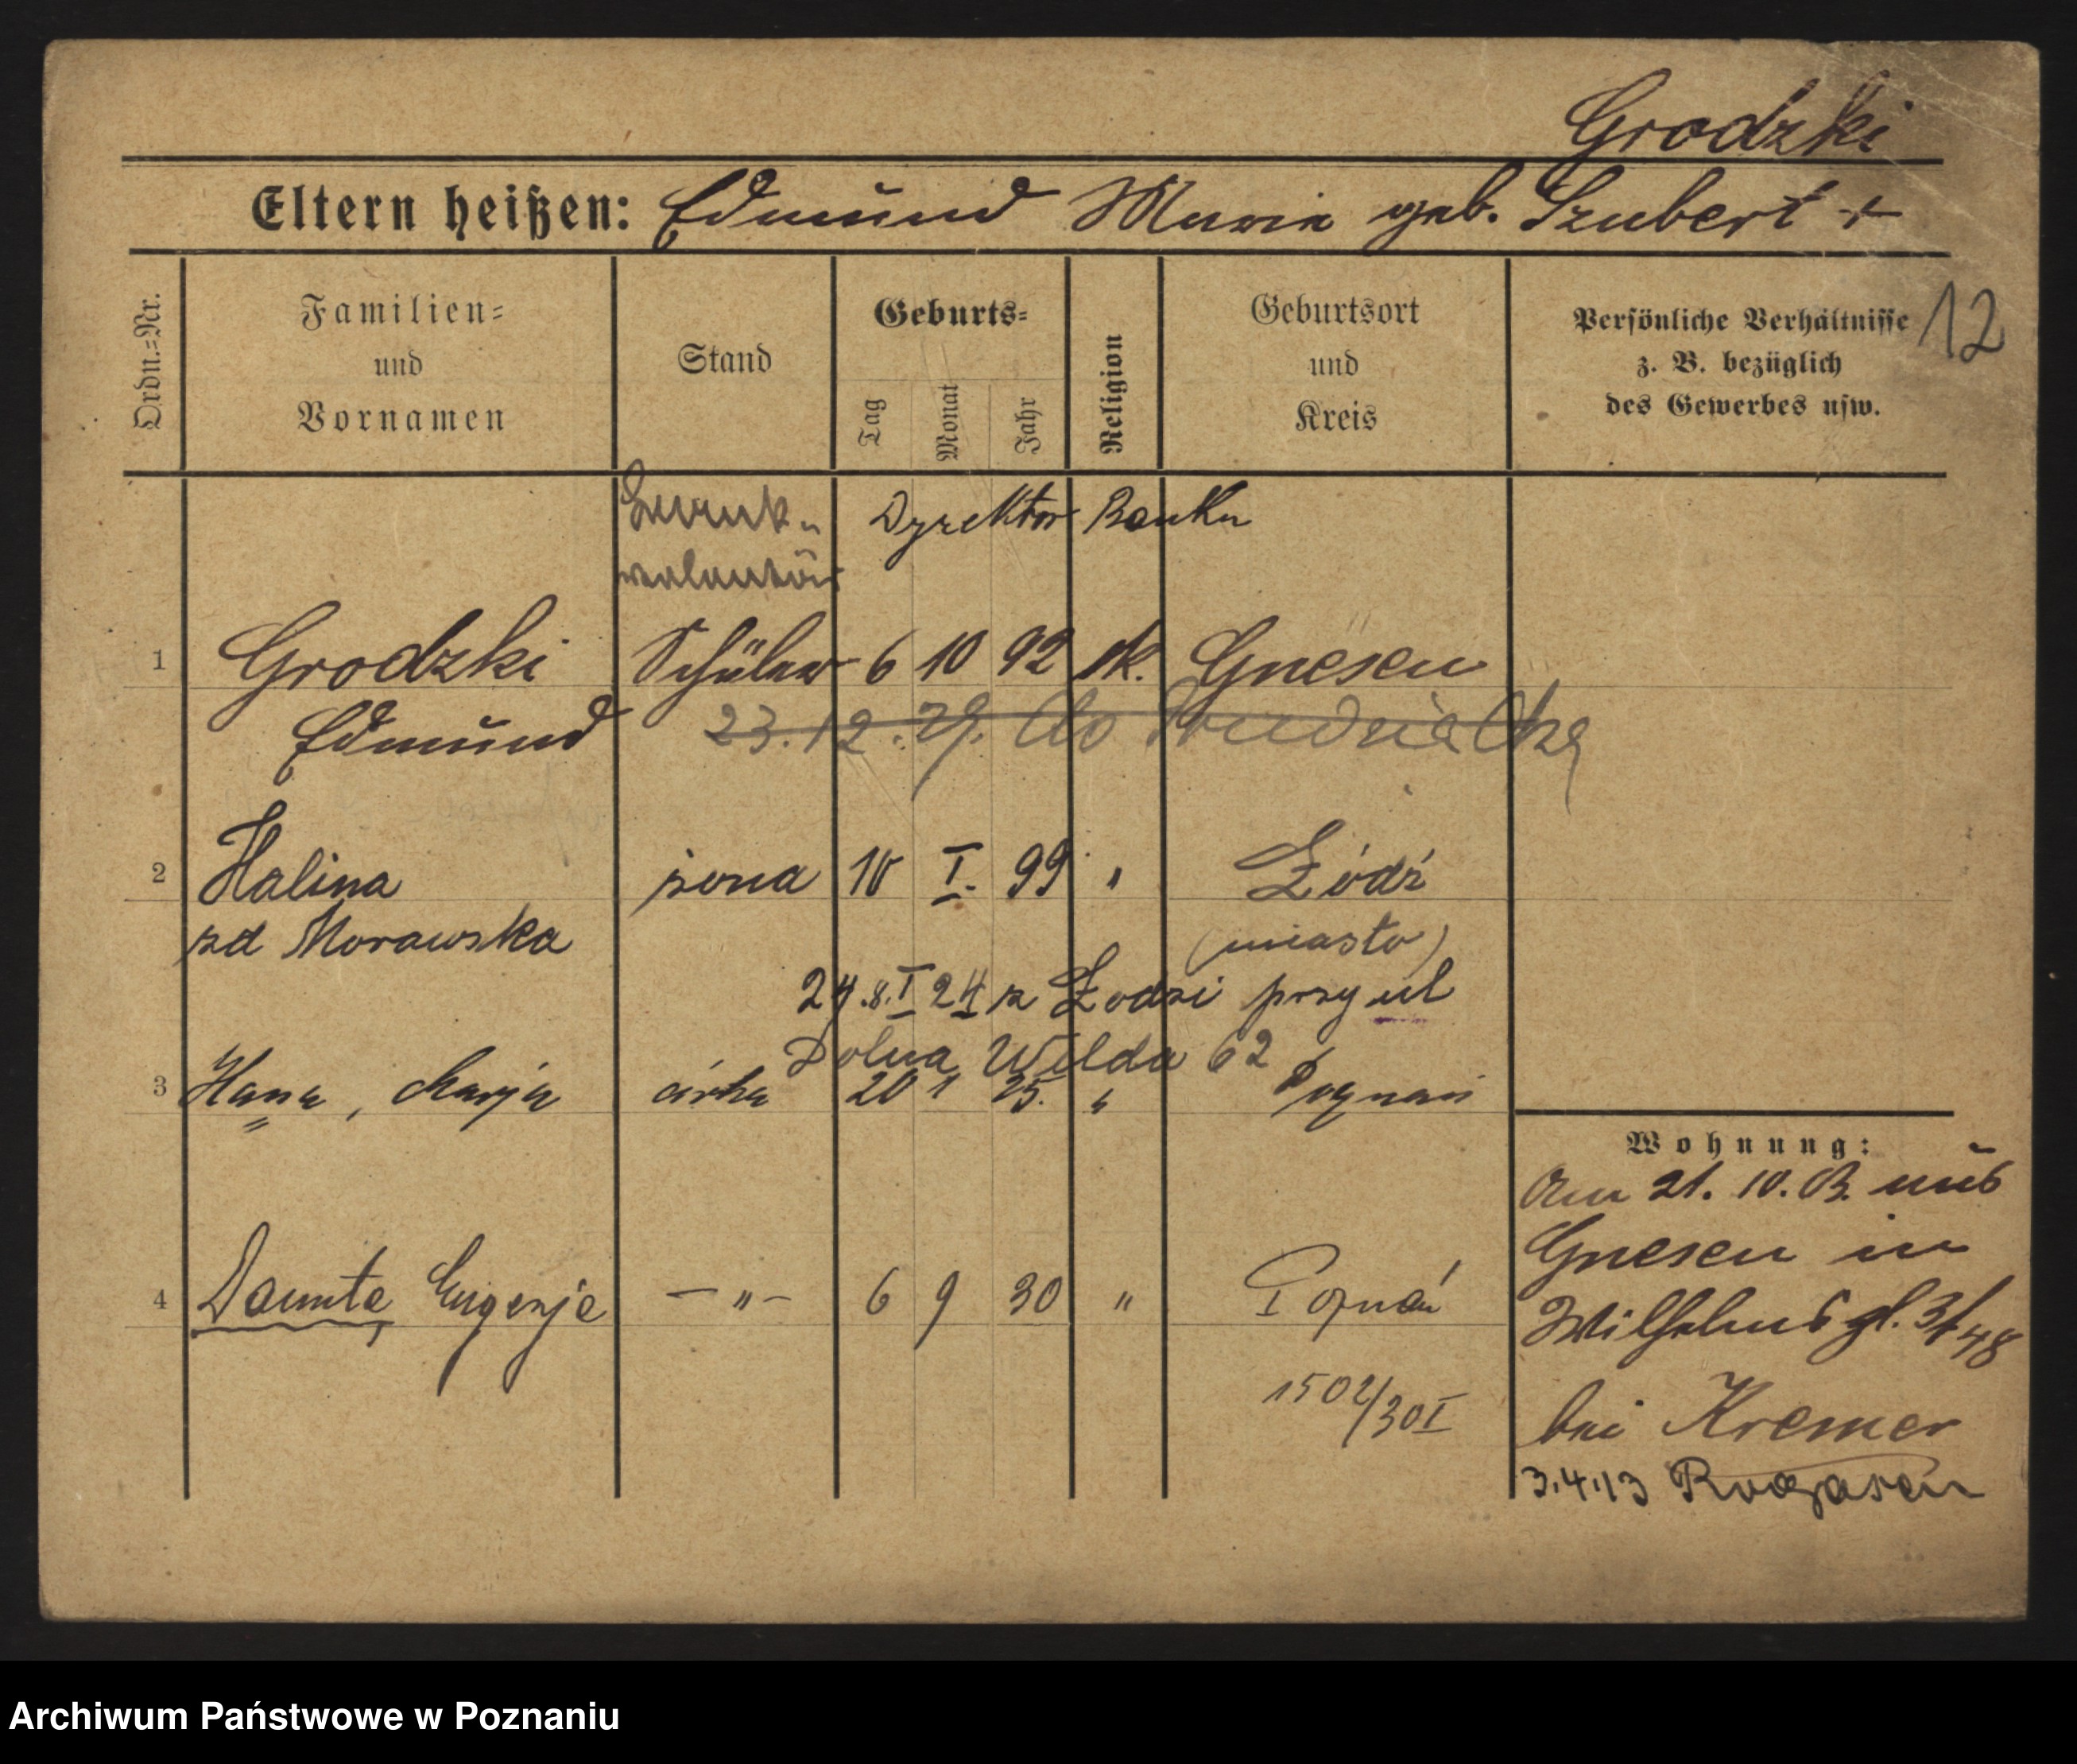 Grodzki
Eltern heißen: Edmund Maria geb. Szubert +
Ordn.-Nr.
Familien=
und
Vornamen
Stand
Geburts=
Tag
Monat
Jahr
Religion
Geburtsort
und
Kreis
Persönliche Verhältnisse
z. B. bezüglich
des Gewerbes usw.
12
Dyrektor Banku
1 Grodzki Schüler 6 10 92 k. Gnesen
Edmund 23.12.29. do
2 Halina żona 10 I. 99 " Łódź
zd Morawska (miasto)
I 24 z Łodzi przy ul
Dolna Wilda 62
3 Hana, Marja córka 20 1 25. " Poznań
4 Danuta Eugenja — " — 6 9 30 " Poznań
1502/30 I
Wohnung:
Am 21. 10. aus
Gnesen in
Wilhelms
bei Kremer
3.4.13 Rogasen
Archiwum Państwowe w Poznaniu